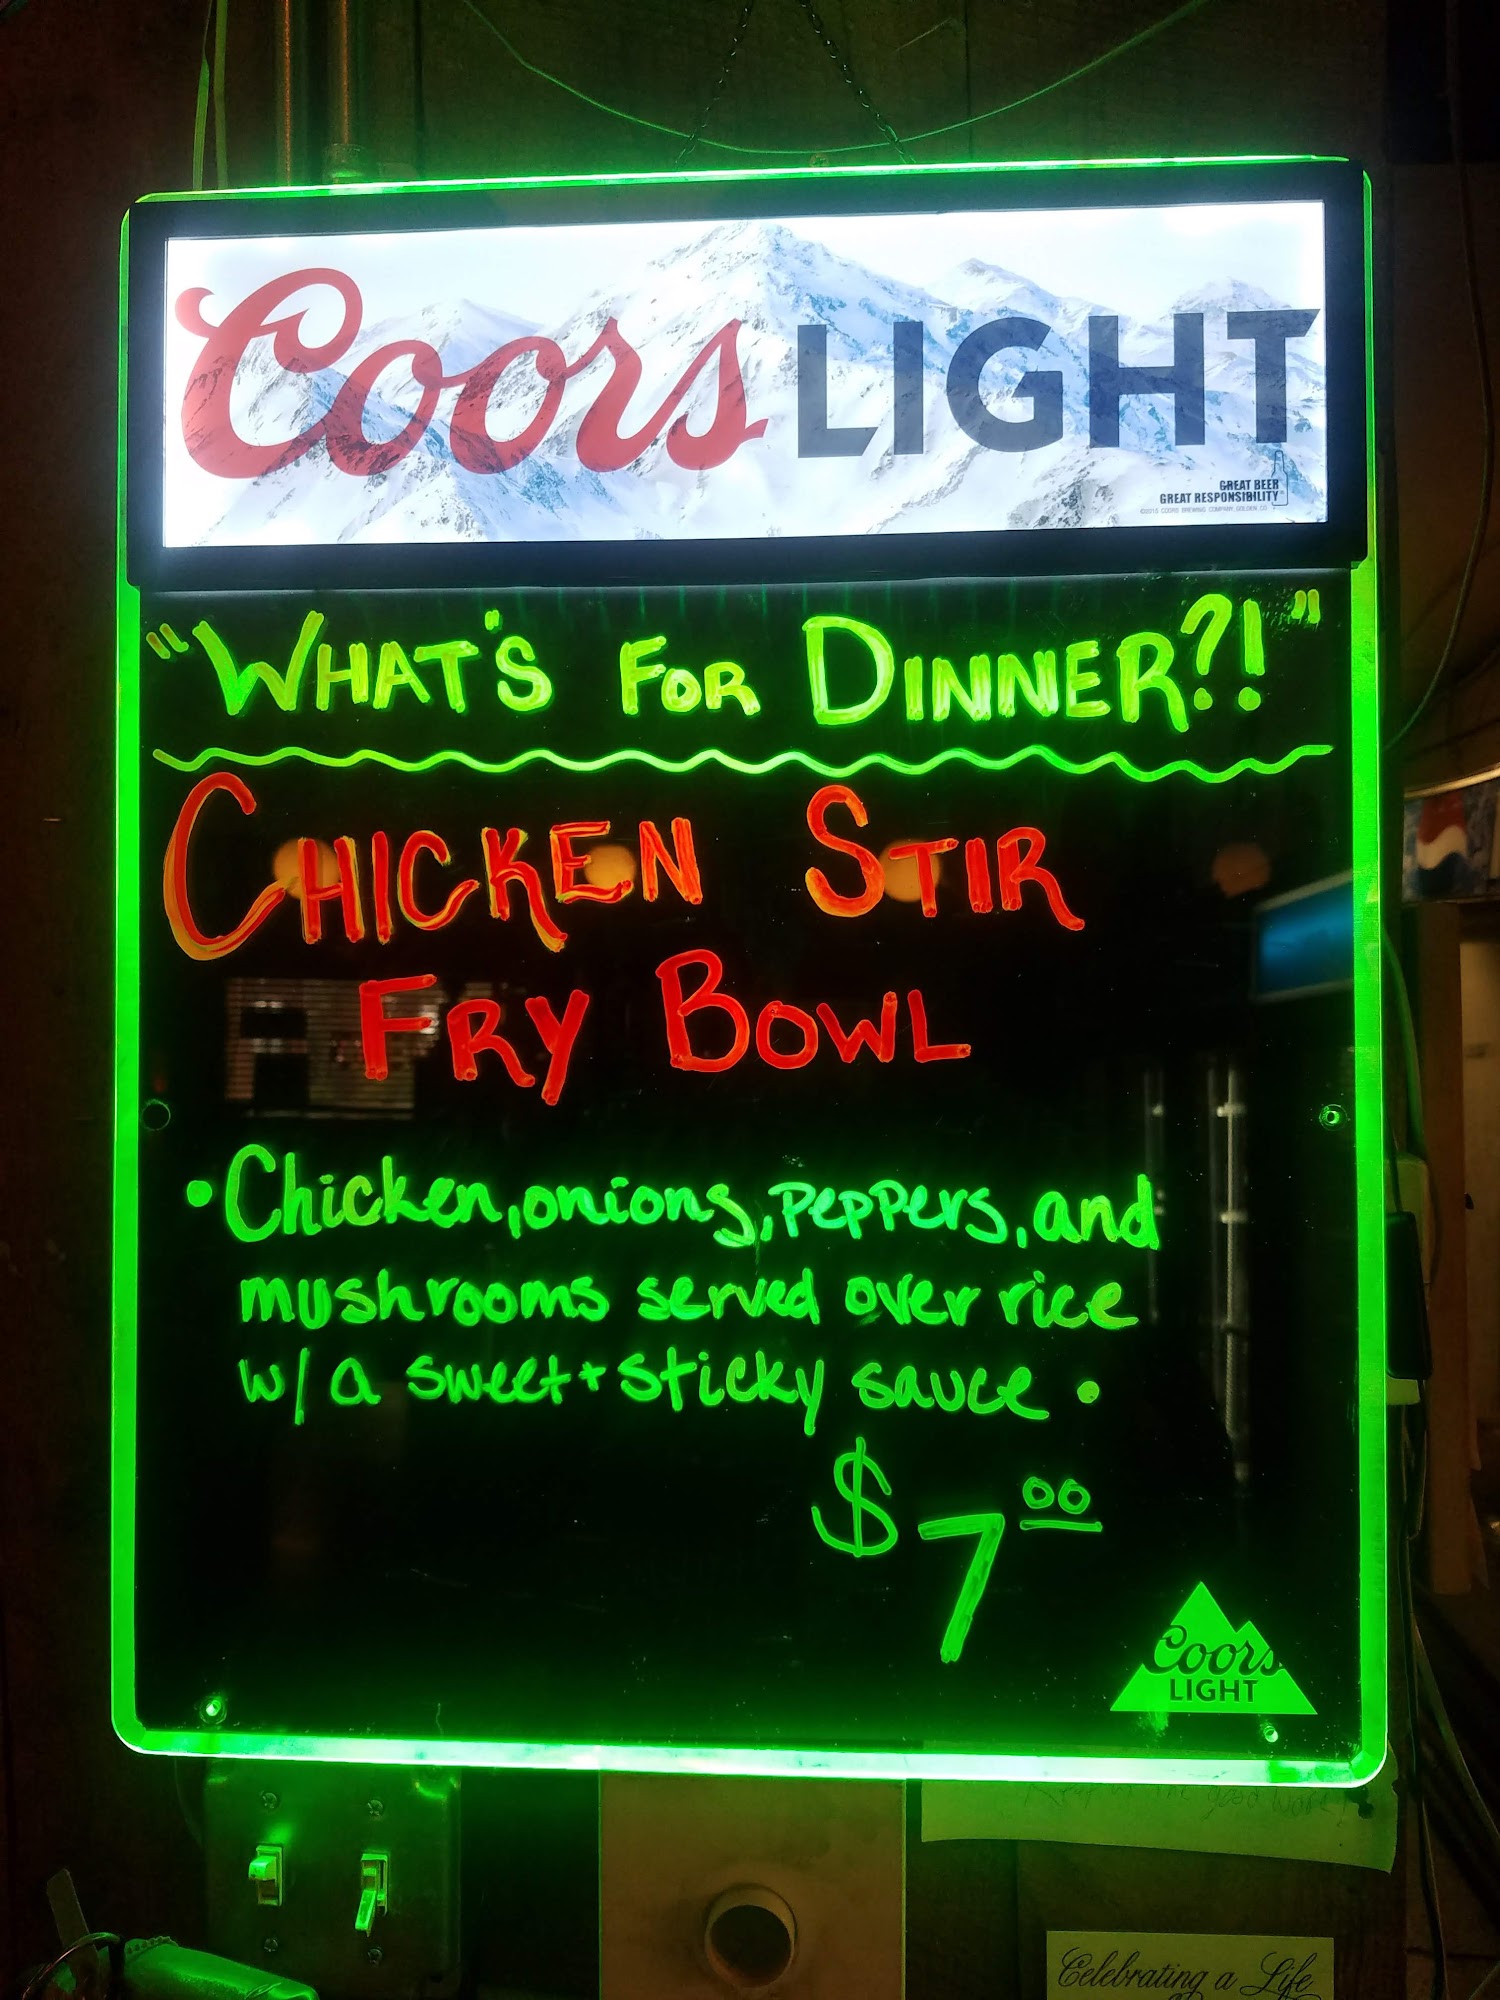 Coors LIGHT
GREAT BEER
GREAT RESPONSIBILITY
©2015 COORS BREWING COMPANY, GOLDEN, CO
"WHAT'S FOR DINNER?!"
CHICKEN STIR
FRY BOWL
• Chicken, onions, peppers, and
mushrooms served over rice
w/ a sweet + sticky sauce •
$7.00
Coors
LIGHT
Celebrating a Life